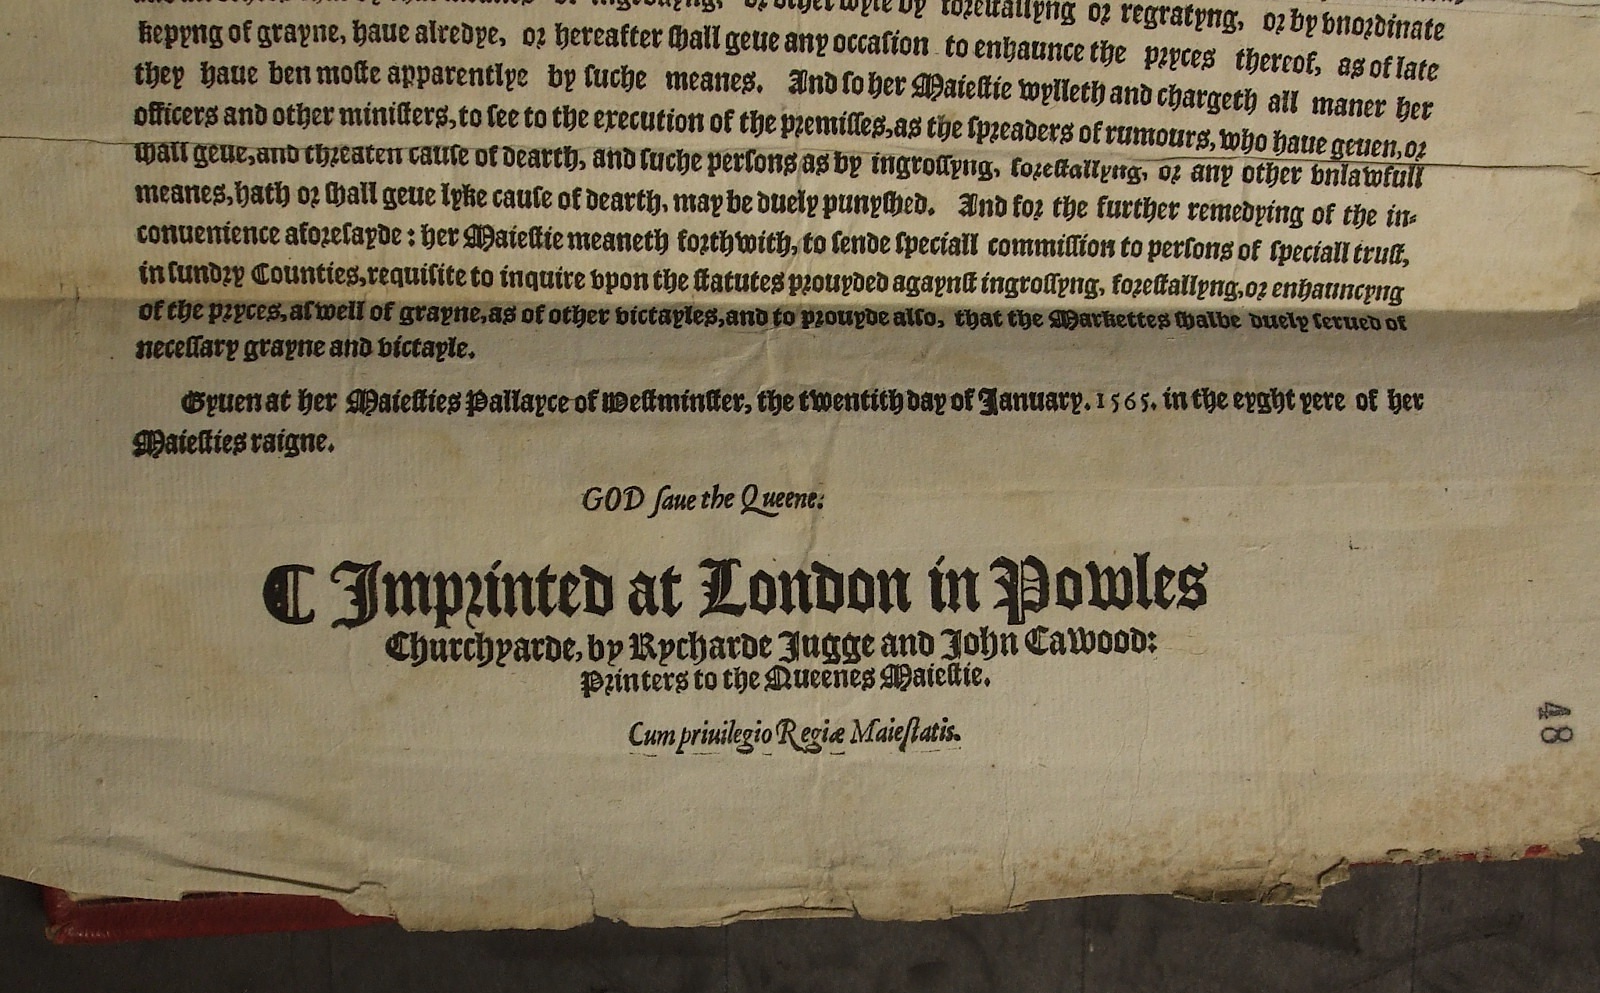 ingrossyng, or otherwyse by forestallyng or regratyng, or by vnordinate
kepyng of grayne, haue alredye, or hereafter shall geue any occasion to enhaunce the pryces thereof, as of late
they haue ben moste apparentlye by suche meanes. And so her Maiestie wylleth and chargeth all maner her
officers and other ministers, to see to the execution of the premisses, as the spreaders of rumours, who haue geuen, or
shall geue, and threaten cause of dearth, and suche persons as by ingrossyng, forestallyng, or any other vnlawfull
meanes, hath or shall geue lyke cause of dearth, may be duely punyshed. And for the further remedying of the in-
conuenience aforesayde: her Maiestie meaneth forthwith, to sende speciall commission to persons of speciall trust,
in sundry Counties, requisite to inquire vpon the statutes prouyded agaynst ingrossyng, forestallyng, or enhauncyng
of the pryces, aswell of grayne, as of other victayles, and to prouyde also, that the Markettes shalbe duely serued of
necessary grayne and victayle.
Gyuen at her Maiesties Pallayce of Westminster, the twentith day of January. 1565. in the eyght yere of her
Maiesties raigne.
GOD saue the Queene:
¶ Imprinted at London in Powles
Churchyarde, by Rycharde Jugge and John Cawood:
Printers to the Queenes Maiestie.
Cum priuilegio Regiæ Maiestatis.
48